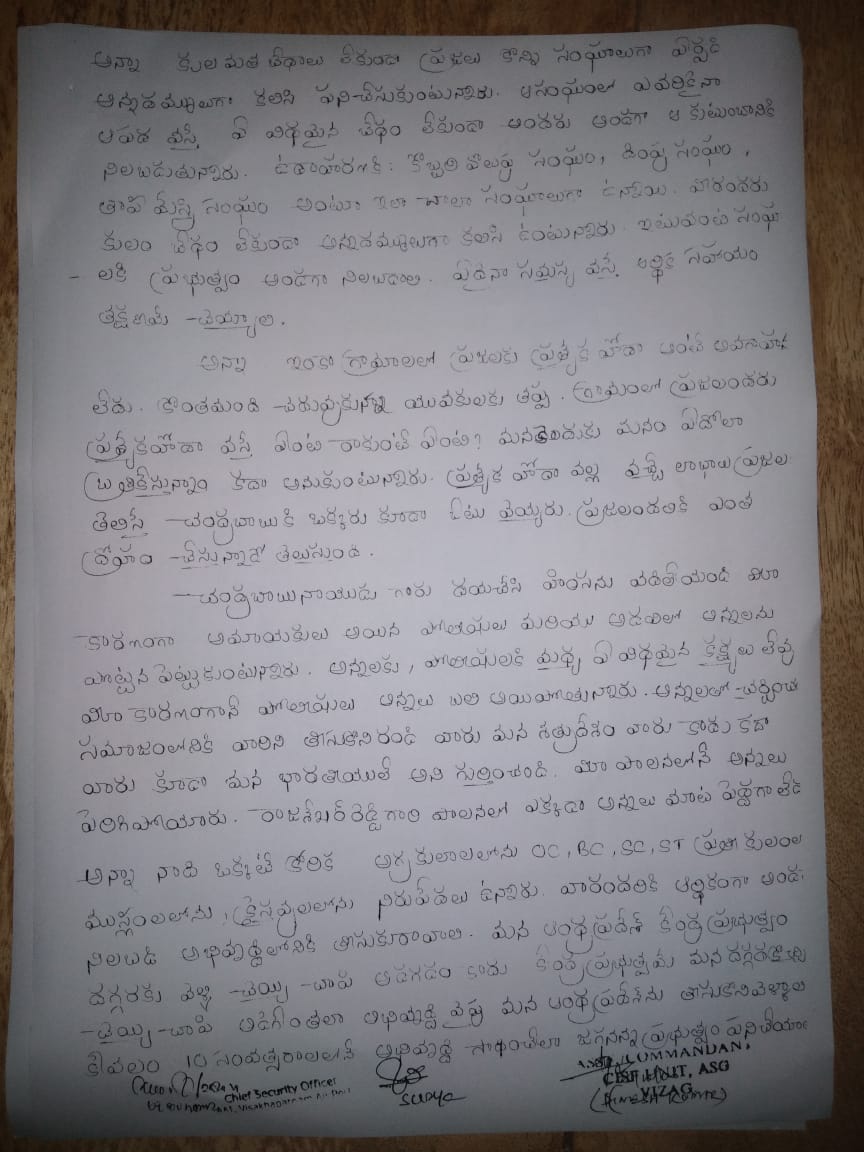 అన్నా కుల మత బేధాలు లేకుండా ప్రజలు కొన్ని సంఘాలుగా ఏర్పడి
అన్నదమ్ములుగా కలిసి పనిచేసుకుంటున్నారు. ఆసంఘంలో ఎవరికైనా
ఆపద వస్తే ఏ విధమైన బేధం లేకుండా అందరు అండగా ఆ కుటుంబానికి
నిలబడుతున్నారు. ఉదాహరణకి: కొబ్బరి వొలుపు సంఘం, దింపు సంఘం,
తాపి మేస్త్రి సంఘం అంటూ ఇలా చాలా సంఘాలుగా ఉన్నాయి. వీరందరు
కులం బేధం లేకుండా అన్నదమ్ములుగా కలిసి ఉంటున్నారు. ఇటువంటి సంఘా
- లకి ప్రభుత్వం అండగా నిలబడాలి. ఏదైనా సమస్య వస్తే ఆర్థిక సహాయం
తక్షణమే చెయ్యాలి.
అన్నా ఇంకా గ్రామాలలో ప్రజలకు ప్రత్యేక హోదా అంటే అవగాహన
లేదు. కొంతమంది చదువుకున్న యువకులకు తప్ప. గ్రామంలో ప్రజలందరు
ప్రత్యేకహోదా వస్తే ఏంటి రాకుంటే ఏంటి? మనకెందుకు మనం ఏదోలా
బ్రతికేస్తున్నాం కదా అనుకుంటున్నారు. ప్రత్యేక హోదా వల్ల వచ్చే లాభాలు ప్రజల
తెలిస్తే చంద్రబాబుకి ఒక్కరు కూడా ఓటు వెయ్యరు. ప్రజలందరికి ఎంత
ద్రోహం చేస్తున్నాడో తెలుస్తుంది.
చంద్రబాబునాయుడు గారు దయచేసి హింసను వదిలేయండి మీ
కారణంగా అమాయకులు అయిన పోలీసులు మరియు అడవిలో అన్నలను
పొట్టన పెట్టుకుంటున్నారు. అన్నలకు, పోలీసులకి మధ్య ఏ విధమైన కక్ష్యలు లేవు
మీ కారణంగానే పోలీసులు అన్నలు బలి అయిపోతున్నారు. అన్నలతో చర్చించి
సమాజంలోనికి వారిని తీసుకొనిరండి వారు మన శత్రుదేశం వారు కాదు కదా
వారు కూడా మన భారతీయులే అని గుర్తించండి. మీ పాలనలోనే అన్నలు
పెరిగిపోయారు. రాజశేఖర్ రెడ్డిగారి పాలనలో ఎక్కడా అన్నలు మాట పెద్దగా లేదు
అన్నా నాది ఒక్కటే కోరిక అగ్రకులాలలోను OC, BC, SC, ST ప్రతి కులంల
ముస్లింలలోను, క్రైస్తవులలోను నిరుపేదలు ఉన్నారు. వారందరికి ఆర్థికంగా అండ
నిలబడి అభివృద్ధిలోనికి తీసుకురావాలి. మన ఆంధ్రప్రదేశ్ కేంద్ర ప్రభుత్వం
దగ్గరకు వెళ్ళి చెయ్యి చాపి అడగడం కాదు కేంద్ర ప్రభుత్వమే మన దగ్గరకొచ్చి
చెయ్యి చాపి అడిగేంతలా అభివృద్ధి వైపు మన ఆంధ్రప్రదేశ్‌ను తీసుకొనివెళ్ళాలి
కేవలం 10 సంవత్సరాలలోనే అభివృద్ధి సాధించేలా జగనన్న ప్రభుత్వం పనిచేయాలి
Chief Security Officer
Visakhapatnam
Surya
ASST. COMMANDANT,
CISF UNIT, ASG
VIZAG